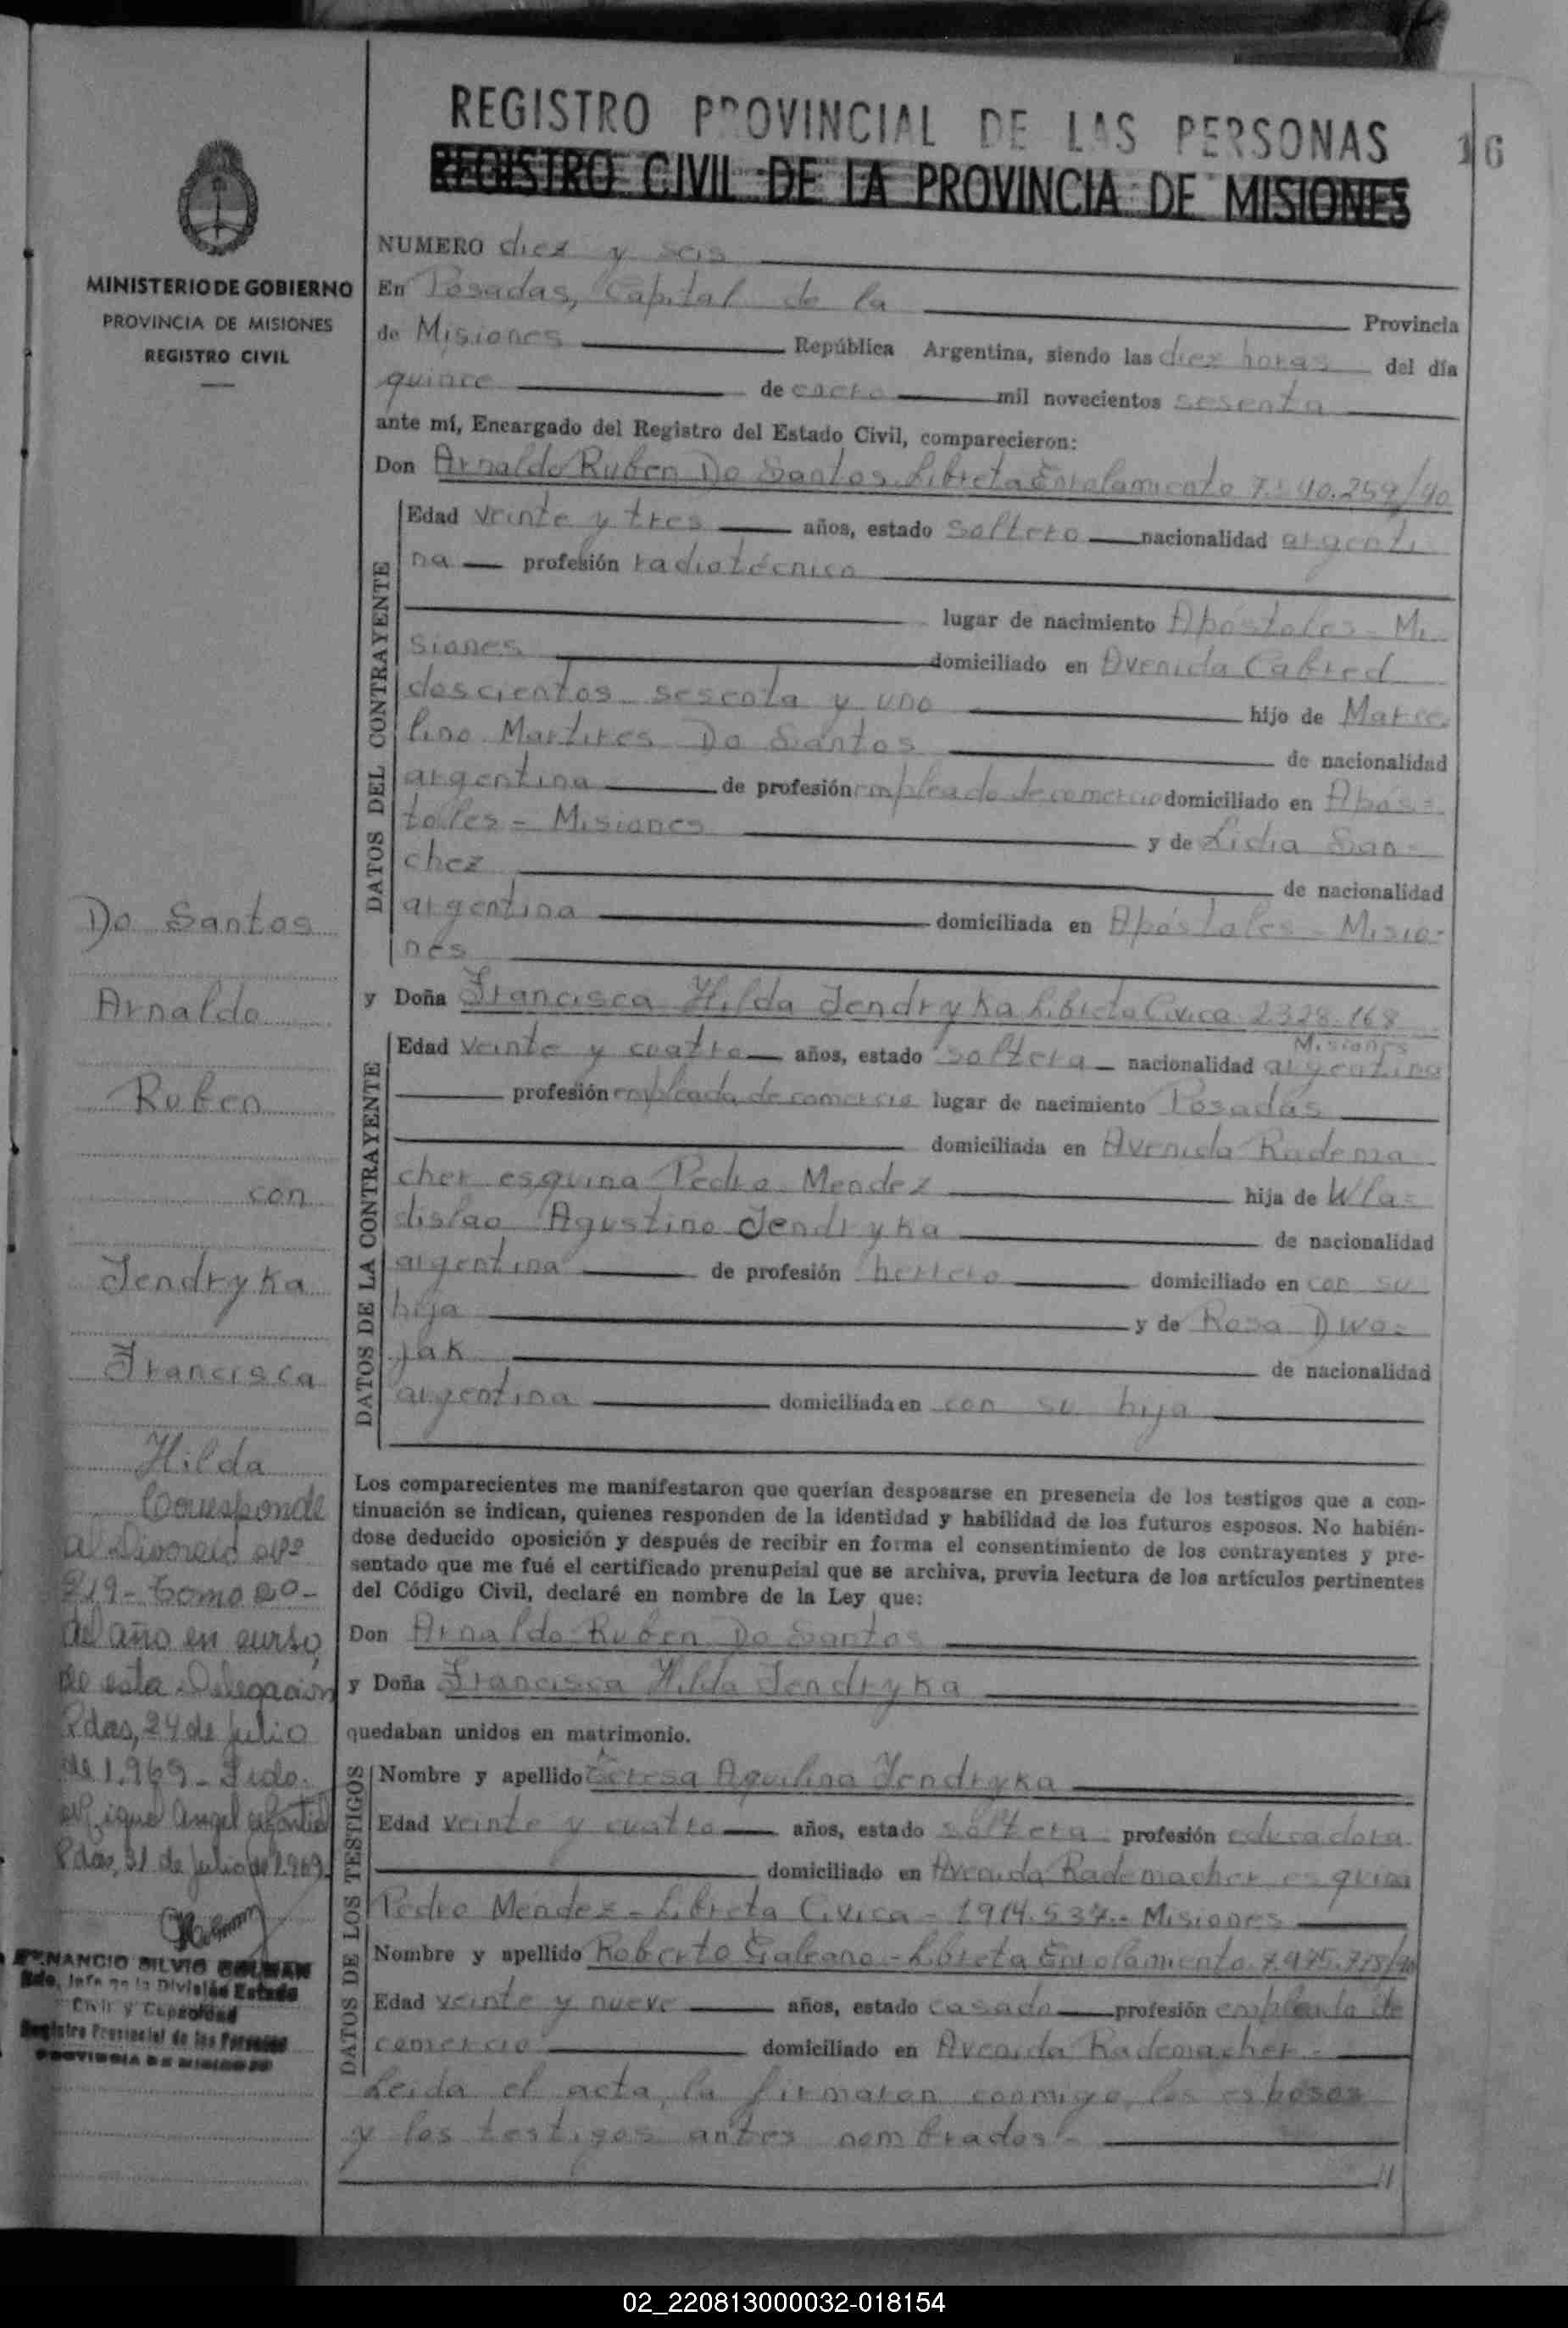 REGISTRO PROVINCIAL DE LAS PERSONAS
16
REGISTRO CIVIL DE LA PROVINCIA DE MISIONES
MINISTERIO DE GOBIERNO
PROVINCIA DE MISIONES
REGISTRO CIVIL
NUMERO diez y seis
En Posadas, Capital de la Provincia
de Misiones República Argentina, siendo las diez horas del día
quince de enero mil novecientos sesenta
ante mí, Encargado del Registro del Estado Civil, comparecieron:
Don Arnaldo Ruben Do Santos Libreta Enrolamiento
Edad veinte y tres años, estado soltero nacionalidad argenti
na profesión radiotécnico
lugar de nacimiento Apóstoles - Mi
siones domiciliado en Avenida Cabred
doscientos sesenta y uno hijo de Marce
lino Martires Do Santos de nacionalidad
argentina de profesión empleado de comercio domiciliado en Após=
toles - Misiones y de Lidia San=
chez de nacionalidad
argentina domiciliada en Apóstoles - Misio-
nes
DATOS DEL CONTRAYENTE
y Doña Francisca Hilda Jendryka Libreta Civica 2.328.168
Misiones
Edad veinte y cuatro años, estado soltera nacionalidad argentina
profesión empleada de comercio lugar de nacimiento Posadas
domiciliada en Avenida Radema
cher esquina Pedro Mendez hija de Wla=
dislao Agustino Jendryka de nacionalidad
argentina de profesión herrero domiciliado en con su
hija y de Rosa Dwo=
jak de nacionalidad
argentina domiciliada en con su hija
DATOS DE LA CONTRAYENTE
Los comparecientes me manifestaron que querían desposarse en presencia de los testigos que a con-
tinuación se indican, quienes responden de la identidad y habilidad de los futuros esposos. No habién-
dose deducido oposición y después de recibir en forma el consentimiento de los contrayentes y pre-
sentado que me fué el certificado prenupcial que se archiva, previa lectura de los artículos pertinentes
del Código Civil, declaré en nombre de la Ley que:
Don Arnaldo Ruben Do Santos
y Doña Francisca Hilda Jendryka
quedaban unidos en matrimonio.
Nombre y apellido Teresa Aquilina Jendryka
Edad veinte y cuatro años, estado soltera profesión educadora
domiciliado en Avenida Rademacher esquina
Pedro Méndez - Libreta Civica - 1.914.537.- Misiones
Nombre y apellido Roberto Galeano - Libreta Enrolamiento
Edad veinte y nueve años, estado casado profesión empleado de
comercio domiciliado en Avenida Rademacher.-
DATOS DE LOS TESTIGOS
Leida el acta, la firmaron conmigo, los esposos
y los testigos antes nombrados.-
Do Santos
Arnaldo
Ruben
con
Jendryka
Francisca
Hilda
Corresponde
al Divorcio Nº
219 - Tomo 2º -
del año en curso,
de esta Delegación
Pdas, 24 de julio
de 1.969 - Fdo.
Miguel Angel
Pdas, 31 de julio de 1969.
VENANCIO SILVIO
Jefe de la División Estado
Civil y Capacidad
Registro Provincial de las Personas
PROVINCIA DE MISIONES
02_220813000032-018154